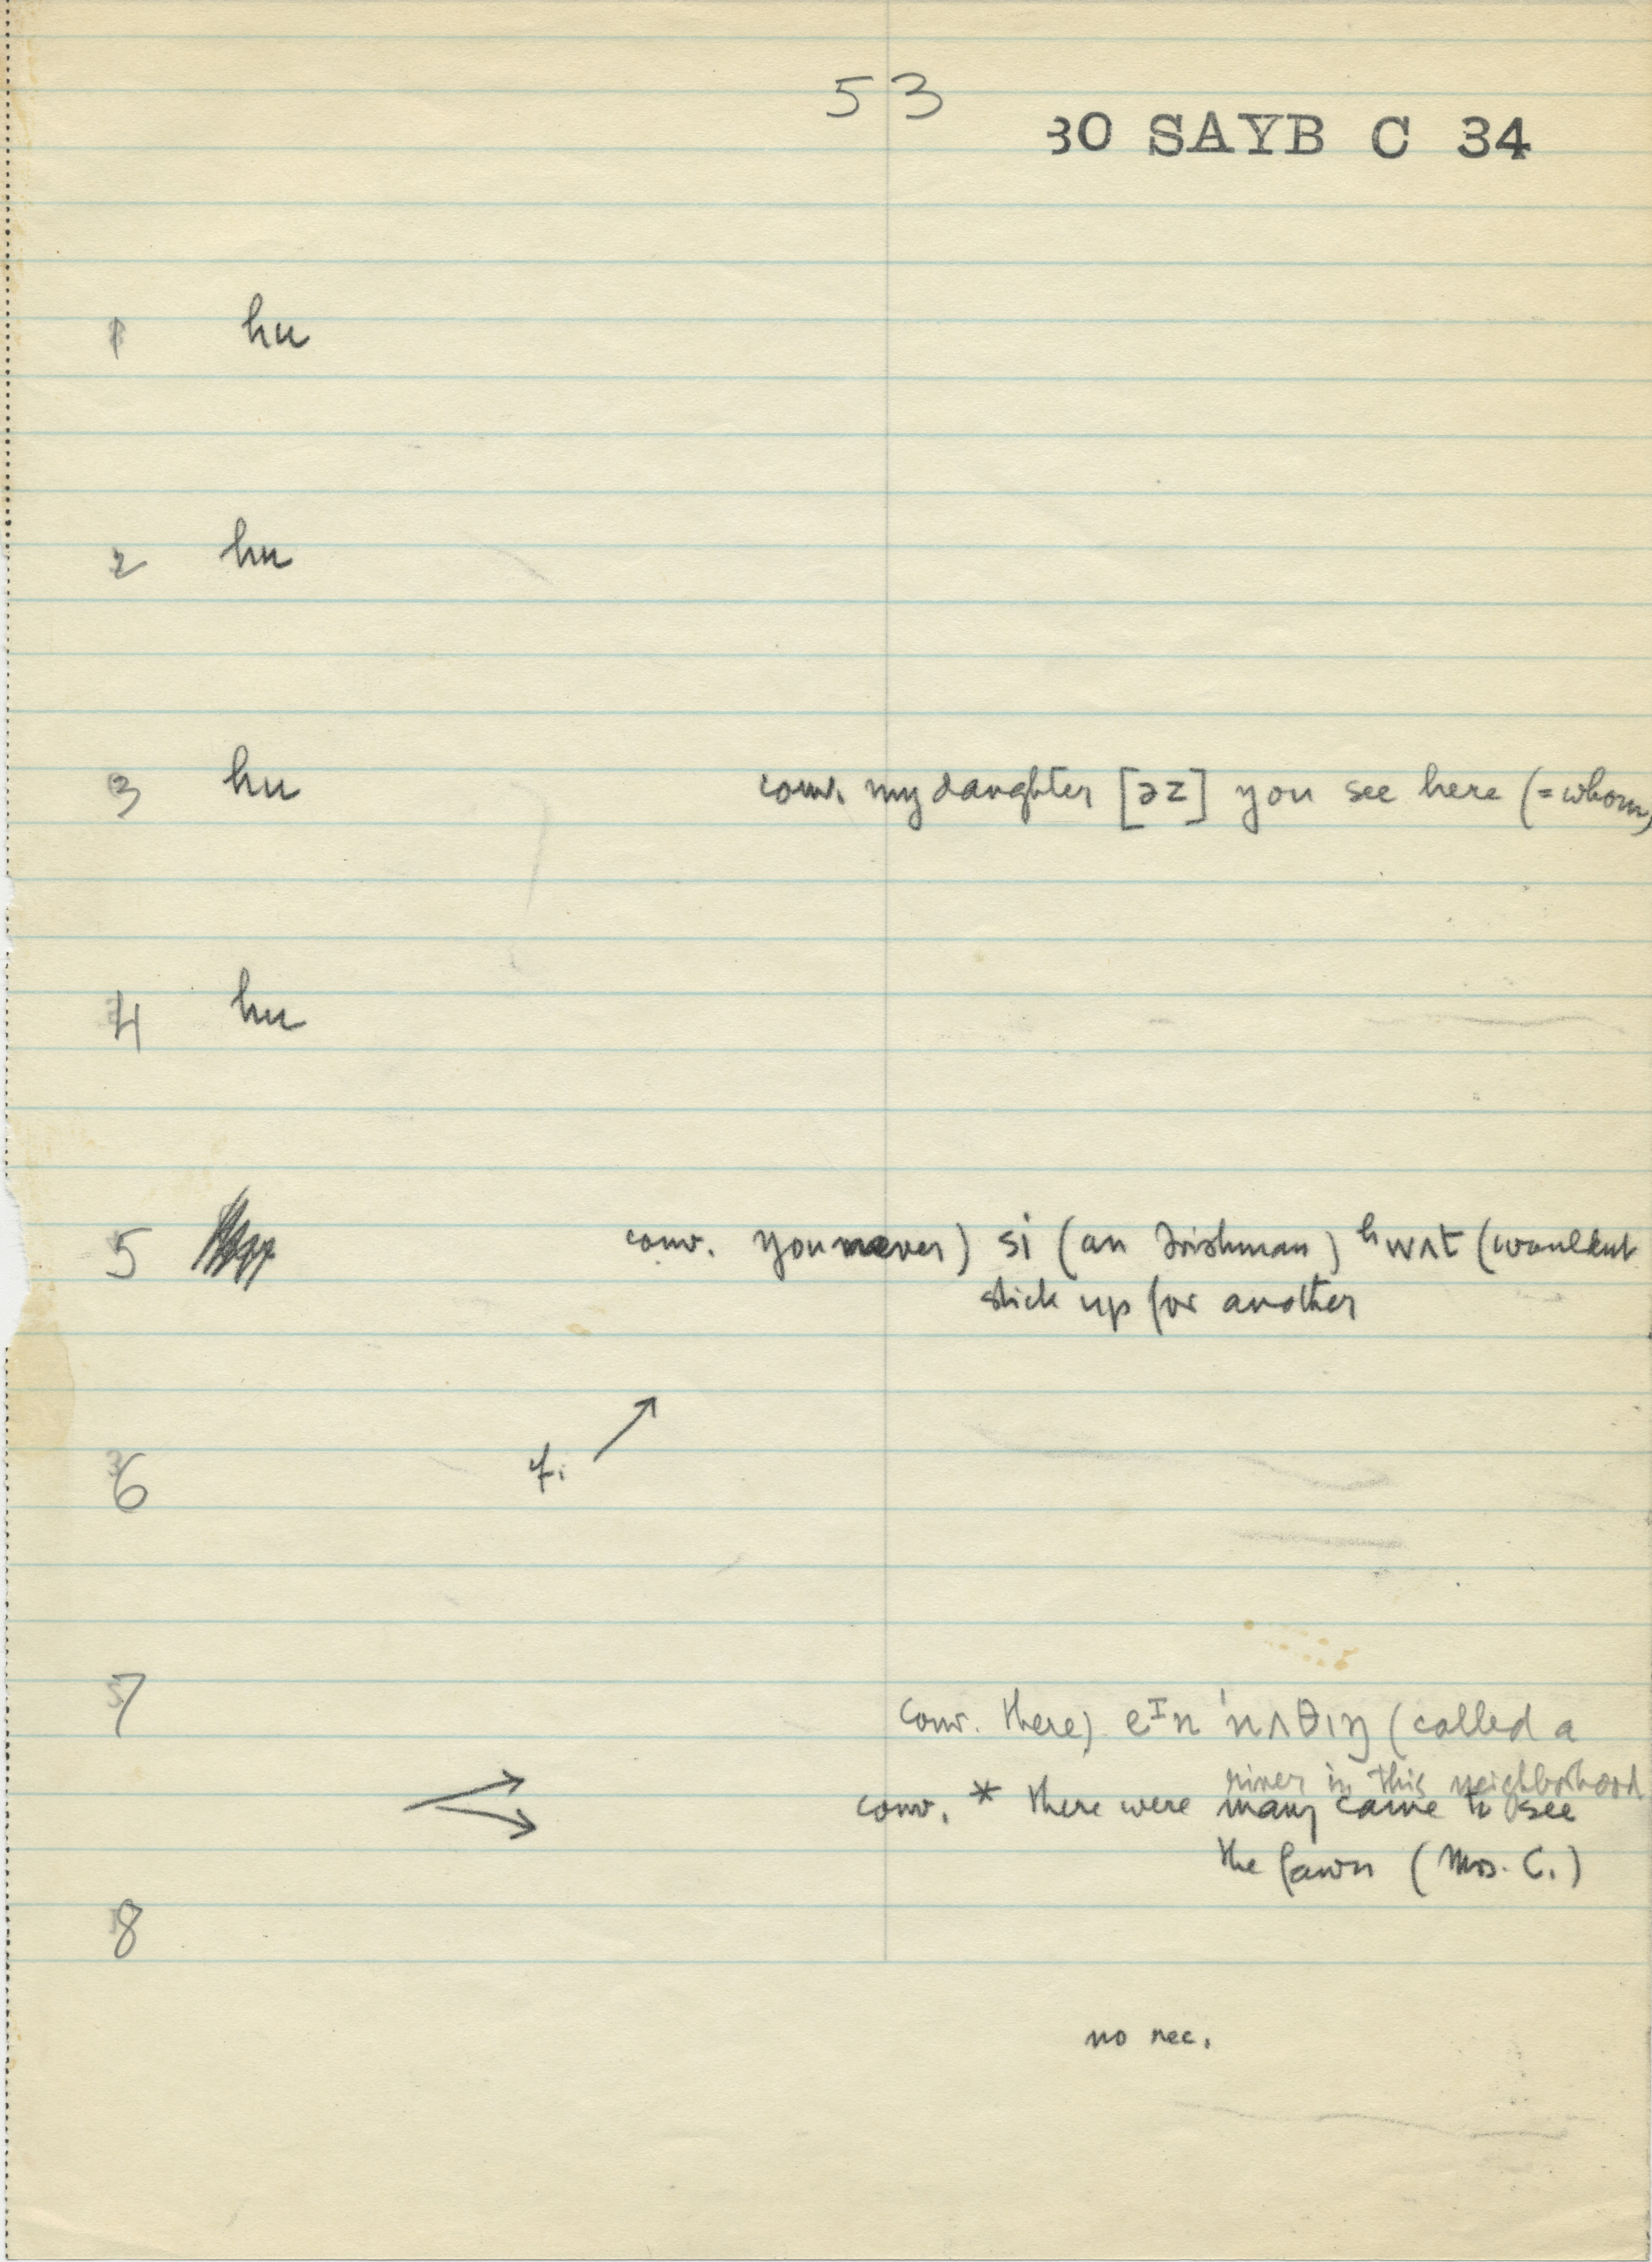 53
30 SAYB C 34
1 hu
2 hu
3 hu conv. my daughter [əz] you see here (=whom)
4 hu
5 conv. you never) si (an Irishman) ʰwʌt (wouldnt
stick up for another
6 ↗
7 conv. there) eᴵn 'nʌθɪŋ (called a
river in this neighborhood
conv. * there were many came to see
the fawn (Mrs. C.)
8
no rec.